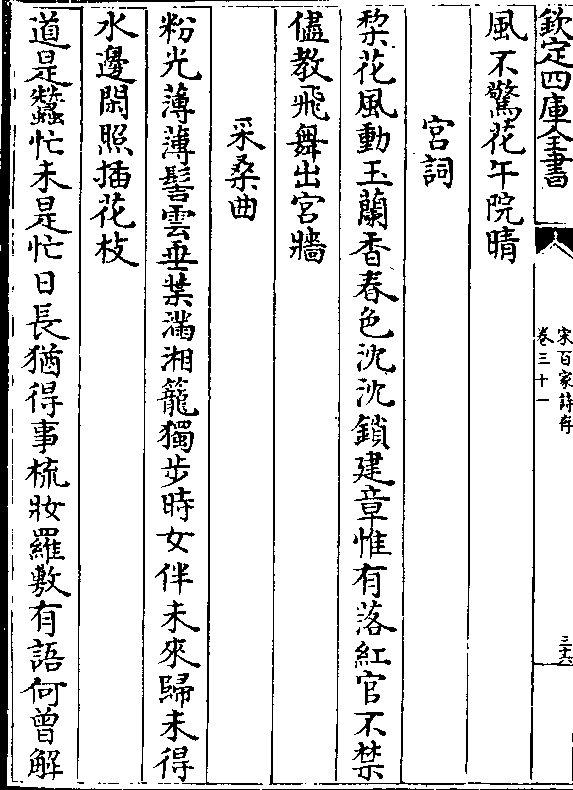 欽定四庫全書
宋百家詩存
卷三十一
三十六
風不驚花午院晴
宮詞
棃花風動玉蘭香春色沈沈鎖建章惟有落紅官不禁
儘教飛舞出宮牆
采桑曲
粉光薄薄髻雲垂葉滿湘籠獨步時女伴未來歸未得
水邊閑照插花枝
道是蠶忙未是忙日長猶得事梳妝羅敷有語何曾解